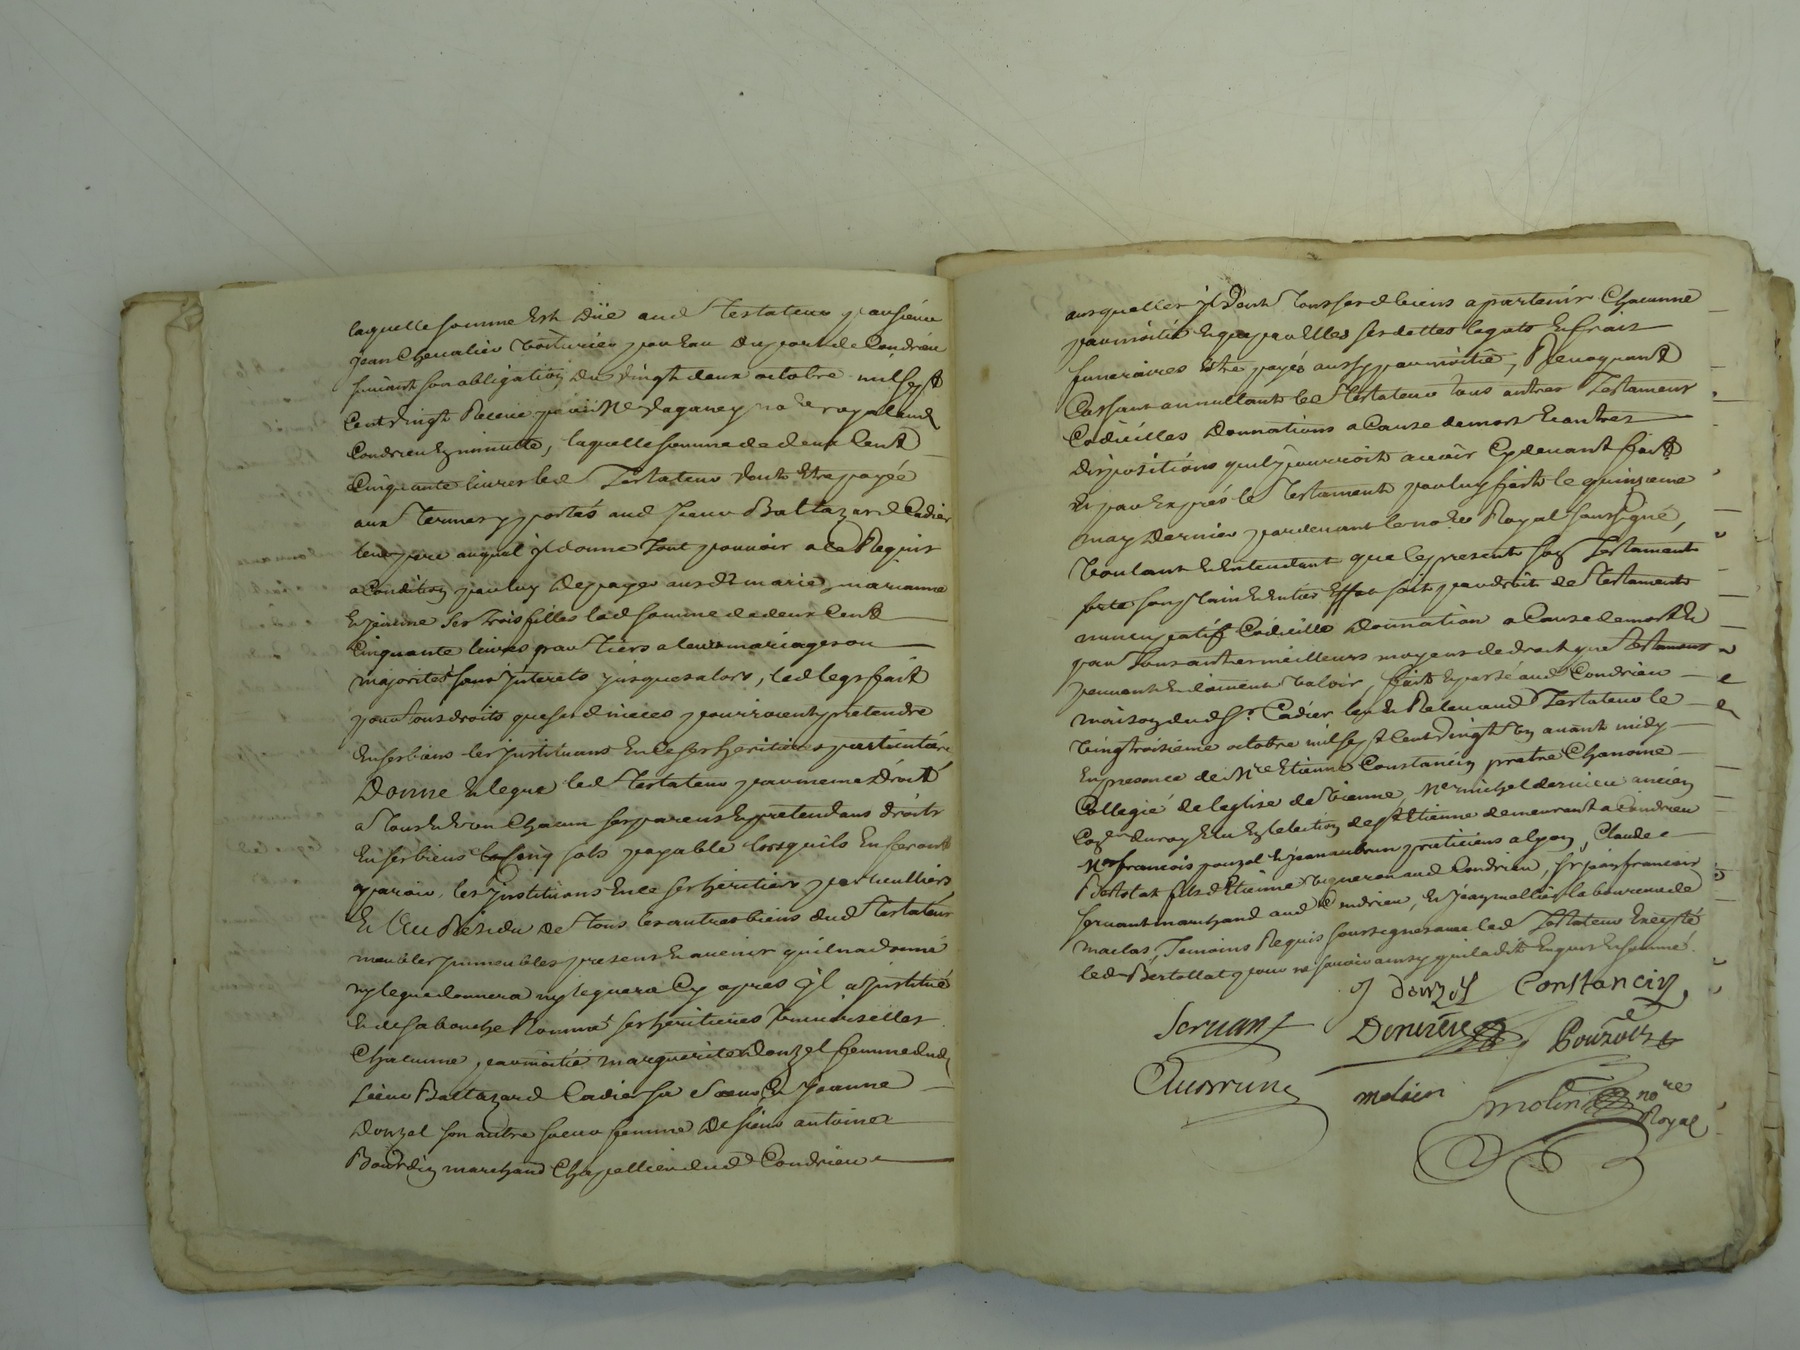 laquelle somme est düe aud Testateur par sieur
jean Chevalier voiturier par eau du port de Condrieu
suivant son obligation du vingt deux octobre mil sept
Cent vingt Receüe par Me daganey no.re royal aud
Condrieu En minutte, laquelle somme de deux Cent
Cinquante livres led Testateur veut Estre payée
aux Termes y portés aud sieur Baltazard Cadier
leur pere auquel jl donne Tout pouvoir a ce Requis
a Condition par luy De payer ausd.s marie, marianne
Et jeanne Ses Trois filles lad somme de deux Cent
Cinquante livres par Tiers a leurs mariages ou
majorites sans jnterets jusques alors, led legs fait
pour Tous droits que sesd nieces pourroient y pretendre
En ses biens les jnstituant En ce ses heritieres particulieres
Donne Et legue led Testateur par meme Droit
a Tous Et Un Chacun ses parens Et pretendans droits
En ses biens Cinq sols payable lorsquils En feront
aparoir, les jnstituans En ce ses heritiers particulliers,
Et Au Residu de Tous les autres biens dud Testateur
meubles jmmeubles presens Et avenir quil na donné
ny legue donnera ny leguera Cy apres jl a jnstitué
Et de sa bouche Nommé ses heritieres Universelles
Chacune par moitié marguerite Donzel femme dud
sieur Baltazard Cadier sa Sœur, Et Jeanne
Donzel son autre sœur femme De sieur antoine
Bourdin marchand Chapellier dud Condrieu
ausquelles jl Veut Tous sesd biens apartenir Chacunne
par moitié Et que par Elles ses dettes legats Et frais
funeraires Estre payés aussy par moitié, Revoquant
Cassant annullant led Testateur tous autres Testament
Codicilles Donnations a Cause de mort Et autres
Dispositions quil pourroit avoir Cy devant fait
Et par Exprés le Testament par luy fait le quinzieme
may Dernier pardevant le no.re Royal soussigné,
Voulant Et Entendant que le present son Testament
sorte son plain Et Entier Effet soit par droit de Testament
nuncupatif Codicille Donnation a Cause de mort Et
par Tous autres meilleurs moyens de droit que Testament
peuvent Et doivent Valoir, fait Et passé aud Condrieu
maison dud Sr. Cadier, leu Et Releu aud Testateur le
vingt troisieme octobre mil sept Cent vingt Un avant midy
En presence de Mre Etienne Constancin pretre Chanoine
Collegié de leglise de Vienne, Me michel dervieu ancien
Con.er du roy Elu En lelection de St Etienne demeurant a Condrieu
Mes francois pouzol Et jean aubrun praticiens a lyon, Claude
Bertolat fils d Etienne Vigneron aud Condrieu, sr jean francois
servant marchand aud Condrieu, Et jean mollin laboureur de
maclas, Temoins Requis soussignes avec led Testateur Excepté
led Bertollat pour ne savoir ainsy quil a dit Enquis Et sommé.
J Donzel Constancin
Servant Dervieu Pouzolz
Aubrun molin molin no.re
Royal